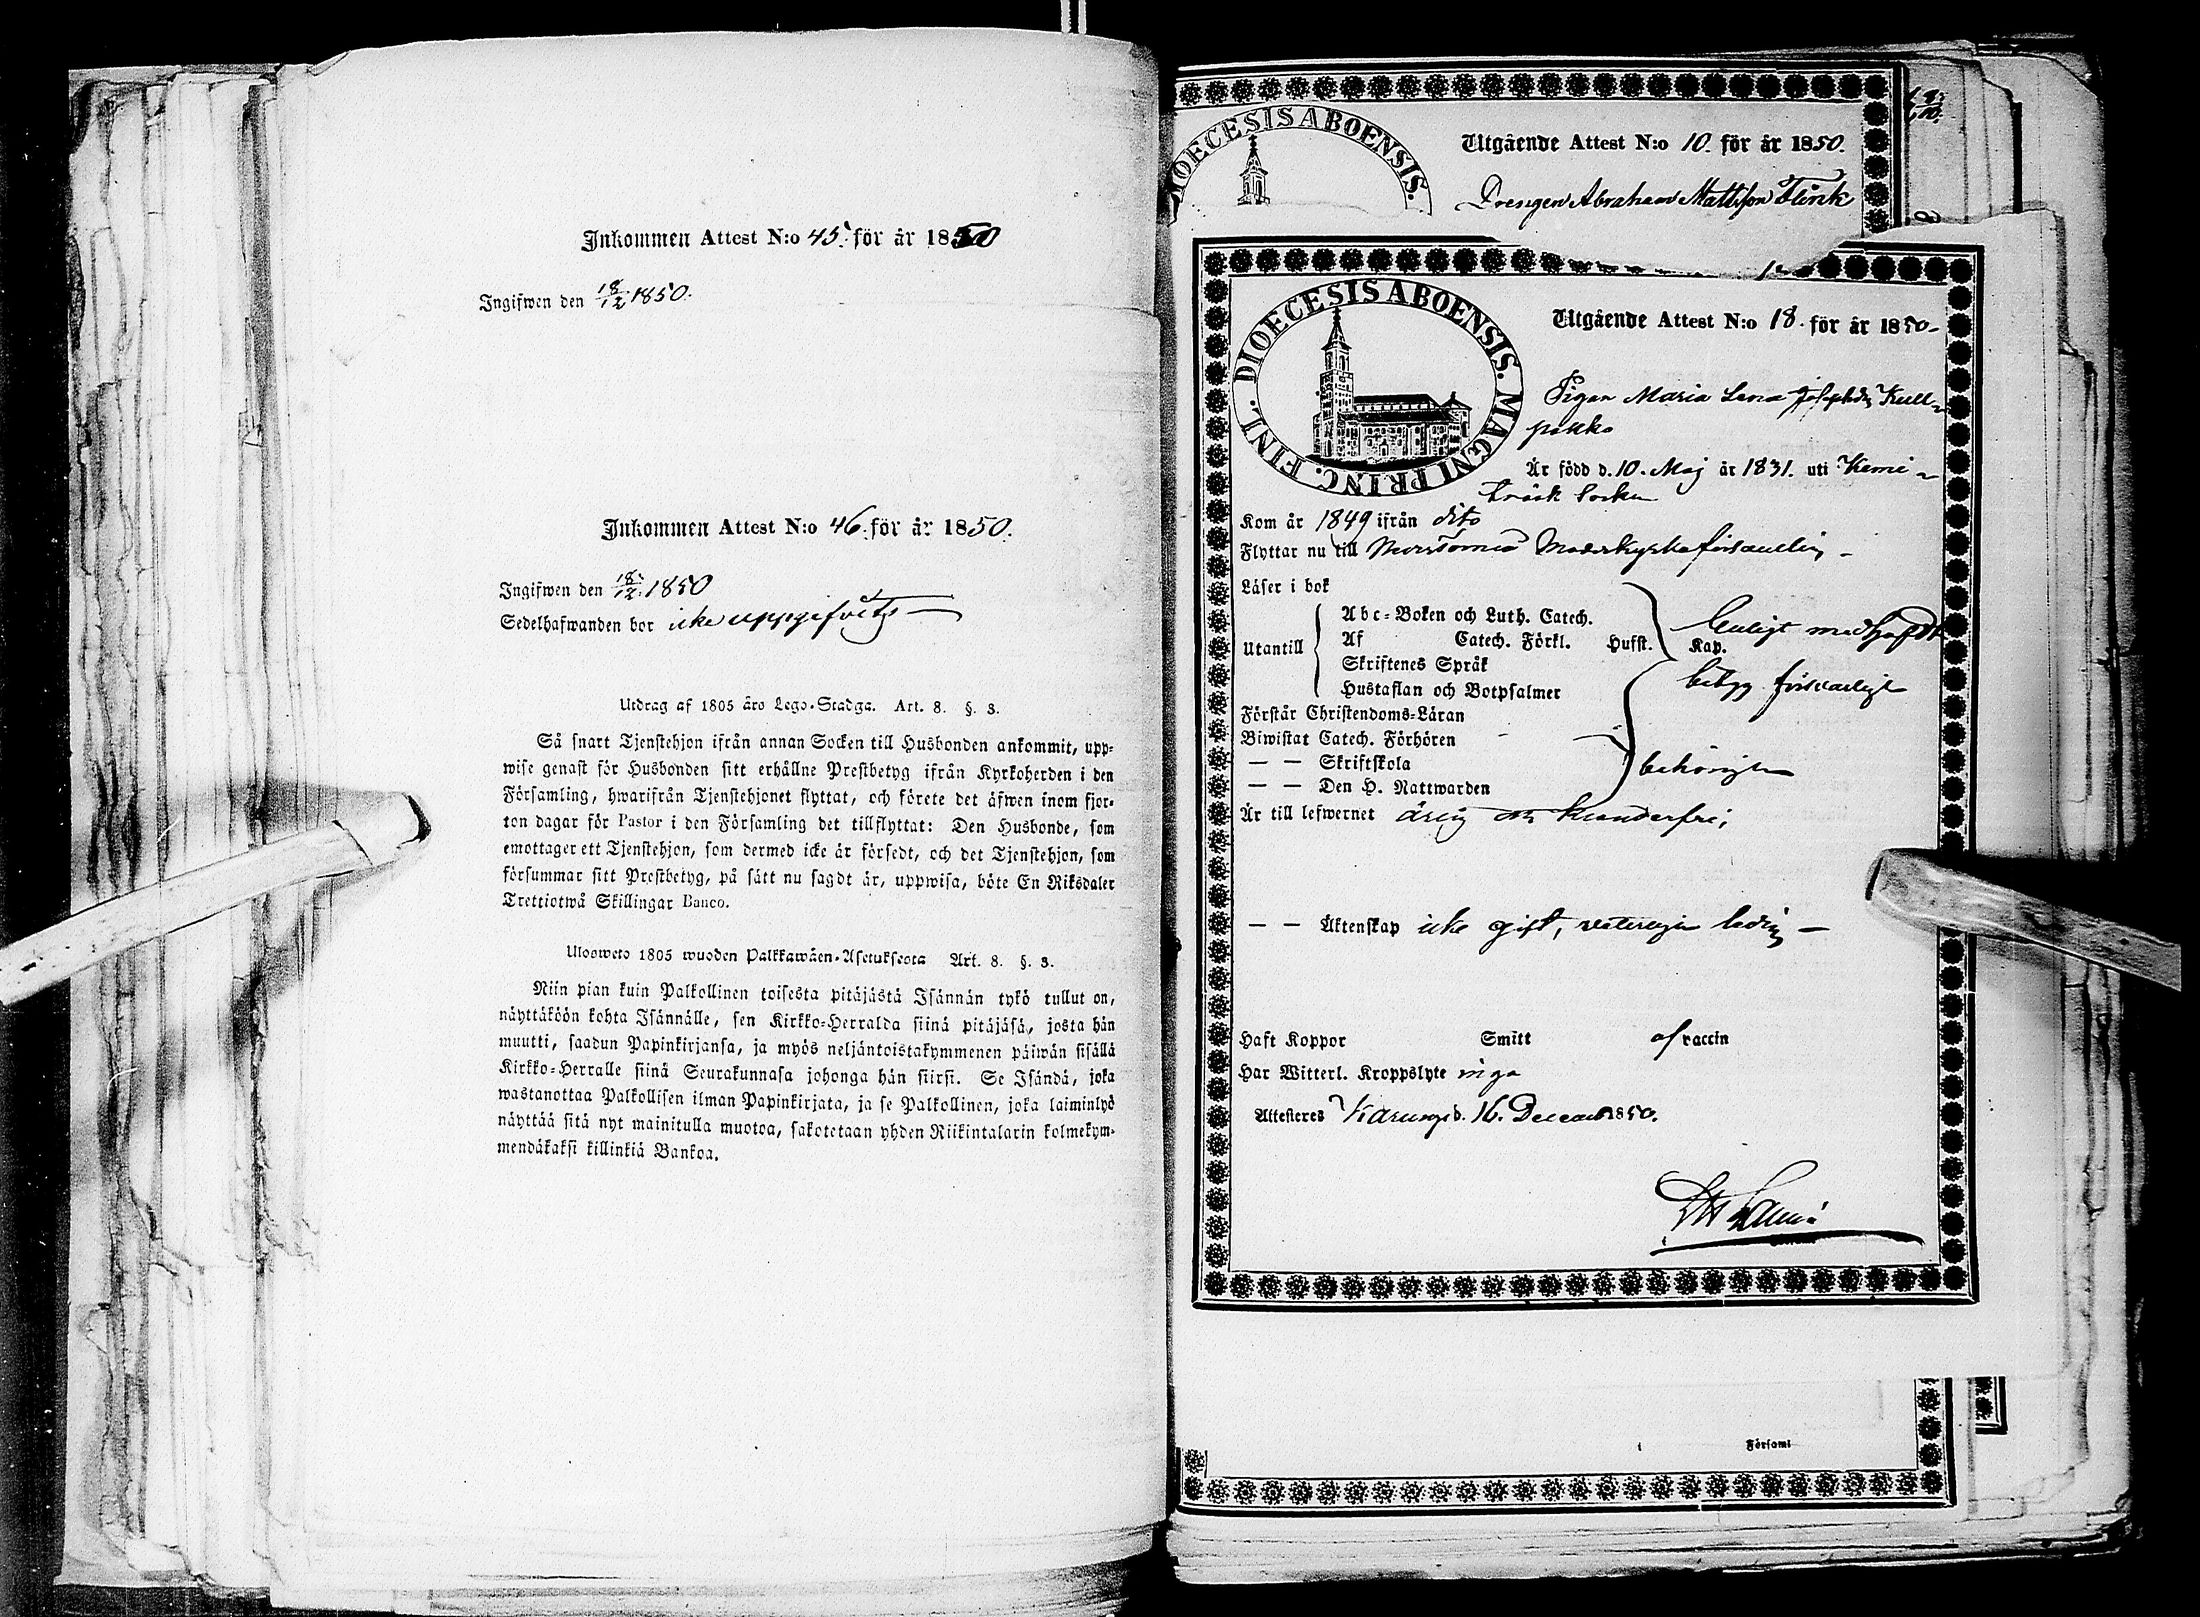 Inkommen Attest N:o 45. för år 1850
Ingifwen den 18/12 1850.
Inkommen Attest N:o 46. för år 1850.
Ingifwen den 18/12. 1850
Sedelhafwanden bor icke uppgifvits —
Utdrag af 1805 års Lego-Stadga. Art. 8. §. 3.
Så snart Tjenstehjon ifrån annan Socken till Husbonden ankommit, upp-
wise genast för Husbonden sitt erhållne Prestbetyg ifrån Kyrkoherden i den
Församling, hwarifrån Tjenstehjonet flyttat, och förete det äfwen inom fjor-
ton dagar för Pastor i den Församling det tillflyttat: Den Husbonde, som
emottager ett Tjenstehjon, som dermed icke är försedt, och det Tjenstehjon, som
försummar sitt Prestbetyg, på sätt nu sagdt är, uppwisa, böte En Riksdaler
Trettiotwå Skillingar Banco.
Ulosweto 1805 wuoden Palkkawäen-Asetuksesta Art. 8. §. 3.
Niin pian kuin Palkollinen toisesta pitäjästä Isännän tykö tullut on,
näyttäköön kohta Isännälle, sen Kirkko-Herralda siinä pitäjäsä, josta hän
muutti, saadun Papinkirjansa, ja myös neljäntoistakymmenen päiwän sisällä
Kirkko-Herralle siinä Seurakunnasa johonga hän siirsi. Se Isändä, joka
wastanottaa Palkollisen ilman Papinkirjata, ja se Palkollinen, joka laiminlyö
näyttää sitä nyt mainitulla muotoa, sakotetaan yhden Riikintalarin kolmekym-
mendäkaksi killinkiä Bankoa.
DIOECESIS ABOENSIS.
Utgående Attest N:o 10. för år 1850.
Drengen Abraham Mattsson Flink
DIOECESIS ABOENSIS. MAGNI PRINC. FINL.
Utgående Attest N:o 18. för år 1850 -
Pigan Maria Lena Josephsdr Kull-
pakko
Är född d. 10. Maj år 1831. uti Kemi-
träsk Socken
Kom år 1849 ifrån dito
Flyttar nu till Moderkyrkoförsamling -
Läser i bok
Utantill
Abc-Boken och Luth. Catech.
Af Catech. Förkl. Hufst. Kap.
Skriftenes Språk
Hustaflan och Botpsalmer
Enligt medhafdt
betyg försvarligt
Förstår Christendoms-Läran
Biwistat Catech. Förhören
— — Skriftskola
— — Den H. Nattwarden
behörigen
Är till lefwernet ärlig och klanderfri;
— — Äktenskap icke gift, veterligen ledig —
Haft Koppor Smitt af vaccin
Har Witterl. Kroppslyte inga
Attesteras Karungi d. 16. December 1850.
Församl